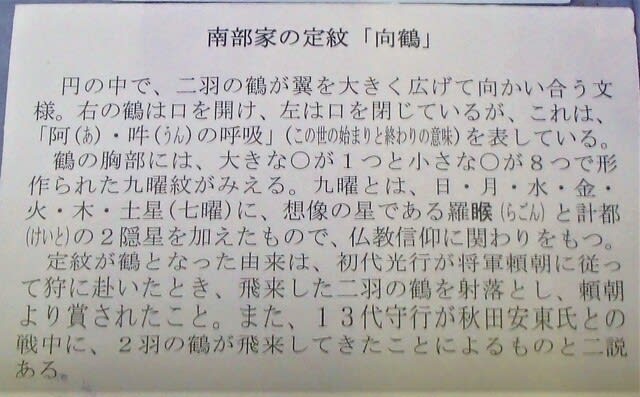 南部家の定紋「向鶴」
円の中で、二羽の鶴が翼を大きく広げて向かい合う文
様。右の鶴は口を開け、左は口を閉じているが、これは、
「阿(あ)・吽(うん)の呼吸」(この世の始まりと終わりの意味)を表している。
鶴の胸部には、大きな〇が１つと小さな〇が８つで形
作られた九曜紋がみえる。九曜とは、日・月・水・金・
火・木・土星(七曜)に、想像の星である羅睺(らごん)と計都
(けいと)の２隠星を加えたもので、仏教信仰に関わりをもつ。
定紋が鶴となった由来は、初代光行が将軍頼朝に従っ
て狩に赴いたとき、飛来した二羽の鶴を射落とし、頼朝
より賞されたこと。また、１３代守行が秋田安東氏との
戦中に、２羽の鶴が飛来してきたことによるものと二説
ある。